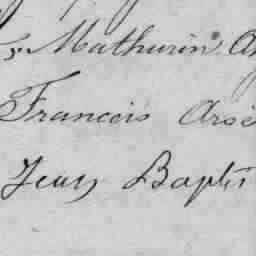 Mathurin A
Francois Arsè
Jean Baptis